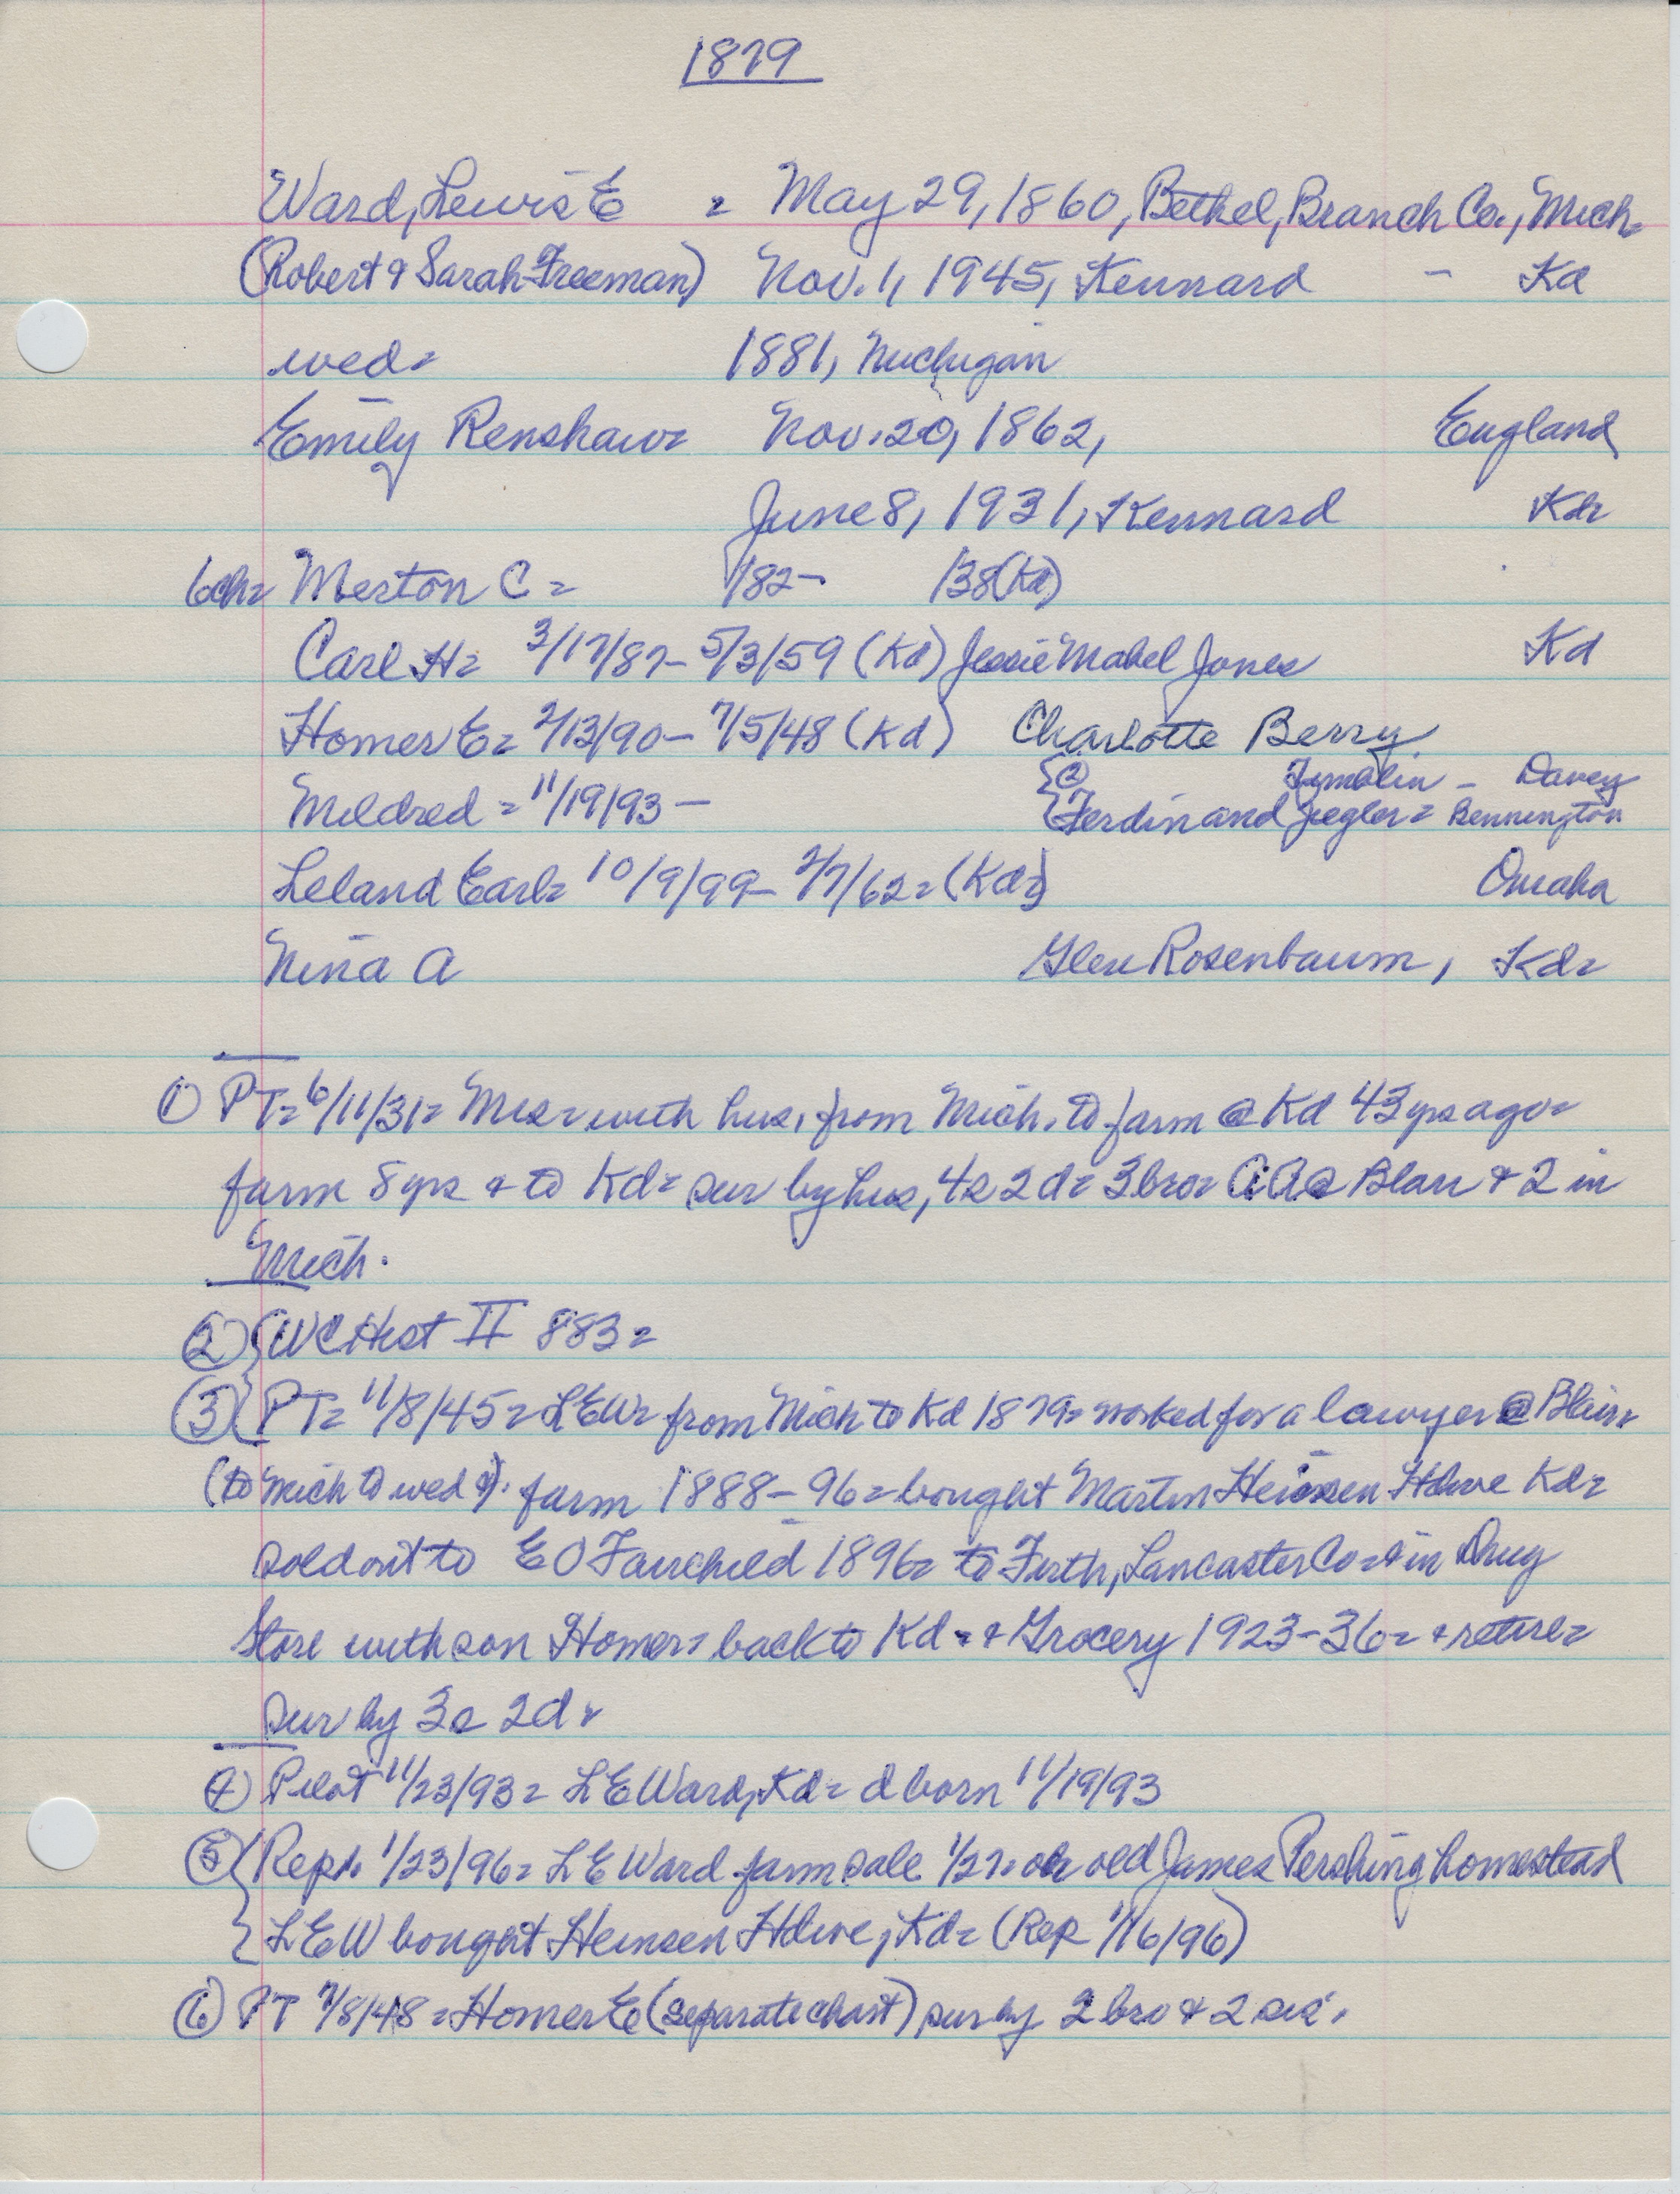 1879
Ward, Lewis E = May 29, 1860, Bethel, Branch Co., Mich=
(Robert & Sarah Freeman) Nov. 1, 1945, Kennard - Kd
wed= 1881, Michigan
Emily Renshaw= Nov. 20, 1862, England
June 8, 1931, Kennard Kd=
6ch= Merton C = /82- /38(Kd)
Carl H= 3/17/87- 5/3/59 (Kd) Jessie Mabel Jones Kd
Homer E= 2/13/90- 7/5/48 (Kd) Charlotte Berry
{② Tymblin - Davey
Mildred = 11/19/93- {Ferdinand Jiegler= Bennington
Leland Earl= 10/9/99- 2/7/62= (Kd=) Omaha
Nina A Glen Rosenbaum, Kd=
① PT= 6/11/31= Mrs= with hus, from Mich. to farm @ Kd 43 yrs ago=
farm 8 yrs & to Kd= sur by hus, 4s 2d= 3 bro= @ Blair & 2 in
Mich.
② {WC Hist II 883=
③ {PT= 11/8/45= LEW= from Mich to Kd 1879= worked for a lawyer @ Blair=
(to Mich to wed &). farm 1888-96= bought Martin Heinsen Hdwe Kd=
sold out to E O Fairchild 1896= to Firth, Lancaster Co= & in Drug
Store with son Homer= back to Kd= & Grocery 1923-36= & retire=
sur by 3s 2d=
④ Pilot 11/23/93= L E Ward, Kd= d born 11/19/93
⑤ {Rep. 1/23/96= L E Ward farm sale 1/27= on old James Pershing homestead
{LEW bought Heinsen Hdwe, Kd= (Rep 1/16/96)
⑥ PT 7/8/48= Homer E (separate chart) sur by 2 bro & 2 sis.